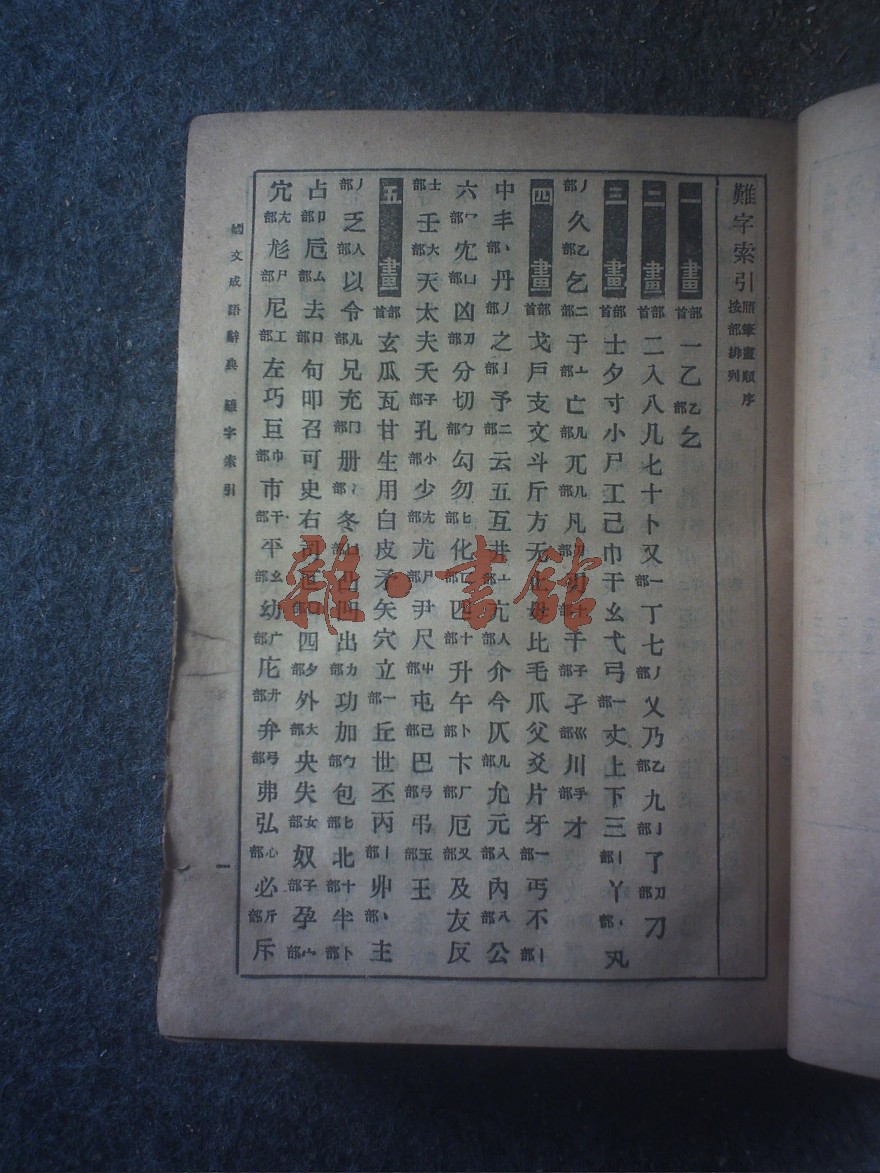 難字索引 照筆畫順序 按部排列
一畫 部首 一乙 乙部 乞
二畫 部首 二入八几七十卜又 一部 丁七 丿部 乂乃 乙部 九 亅部 了 刀部 刁
三畫 部首 士夕寸小尸工己巾干幺弋弓 一部 丈上下三 丨部 丫 丶部 丸
丿部 久 乙部 乞 二部 于 亠部 亡 儿部 兀 几部 凡 千 子部 孑 巛部 川 手部 才
四畫 部首 戈戶支文斗斤方无止毋比毛爪父爻片牙 一部 丐不 丨部
中丰 丶部 丹 丿部 之 亅部 予 二部 云五互井 亠部 亢 人部 介今仄 儿部 允元 入部 內 八部 公
六 冖部 冘 凵部 凶 刀部 分切 勹部 勾勿 匕部 化 匸部 匹 十部 升午 卜部 卞 厂部 厄 又部 及友反
士部 壬 大部 天太夫夭 子部 孔 小部 少 尢部 尤 尸部 尹尺 屮部 屯 己部 巴 弓部 弔 玉部 王
五畫 部首 玄瓜瓦甘生用白皮矛矢穴立 一部 丘世丕丙 丨部 丱 丶部 主
丿部 乏 人部 以令 儿部 兄充 冂部 册 冫部 冬 凵部 凸凹出 力部 功加 勹部 包 匕部 北 十部 半 卜部
占 卩部 卮 厶部 去 口部 句叩召可史右司叵 囗部 四 夕部 外 大部 央失 女部 奴 子部 孕 宀部
宄 尢部 尥 尸部 尼 工部 左巧巨 巾部 市 干部 平 幺部 幼 广部 庀 廾部 弁 弓部 弗弘 心部 必 斤部 斥
國文成語辭典 難字索引
一
雜·書館